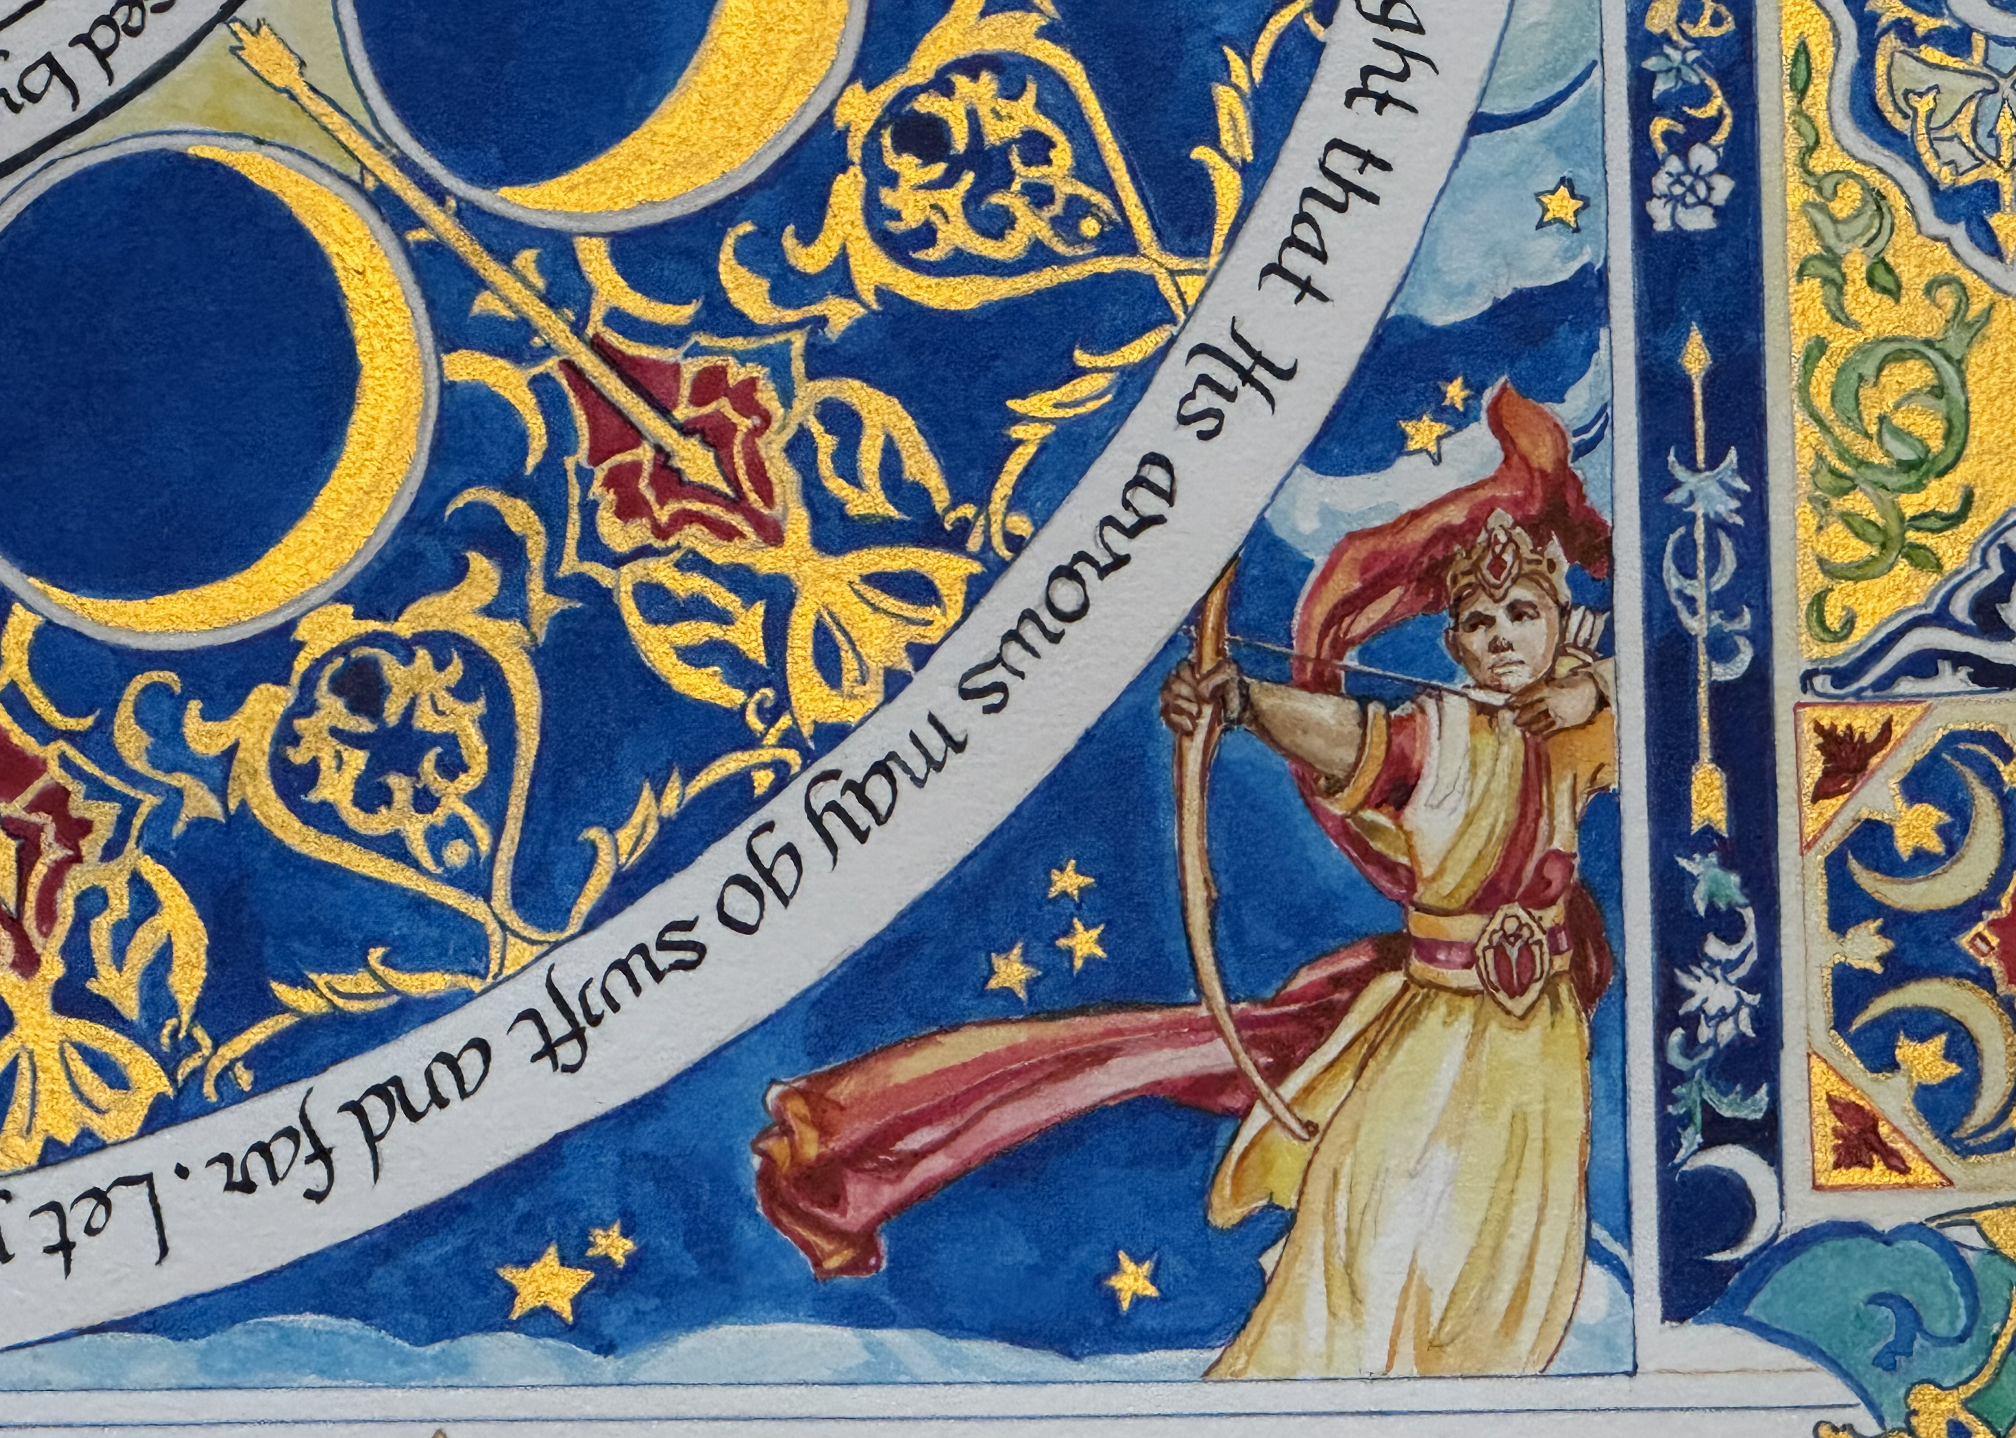 ght that His arrows may go swift and far. Let